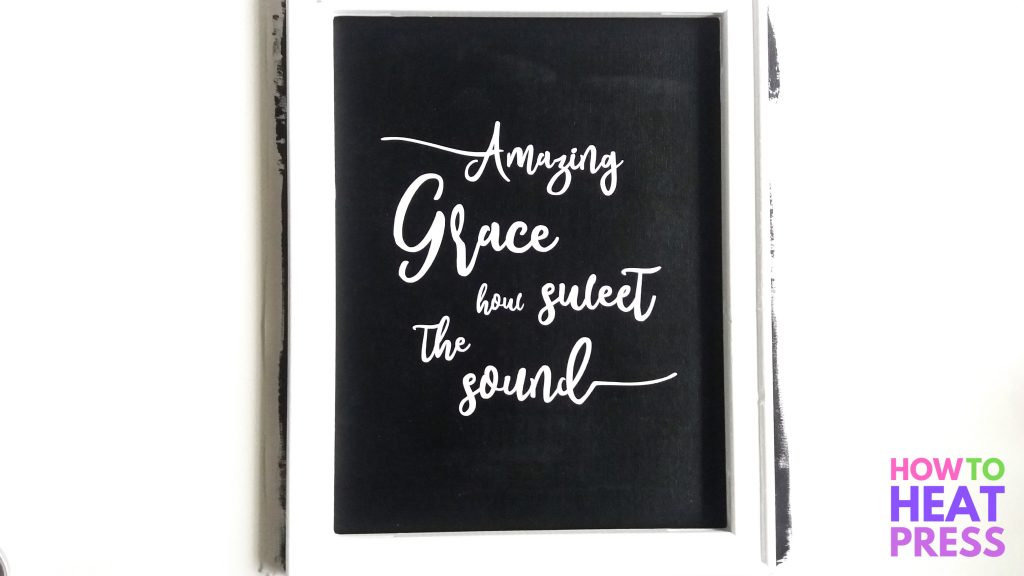 Amazing
Grace
how sweet
The
sound
HOW TO
HEAT
PRESS